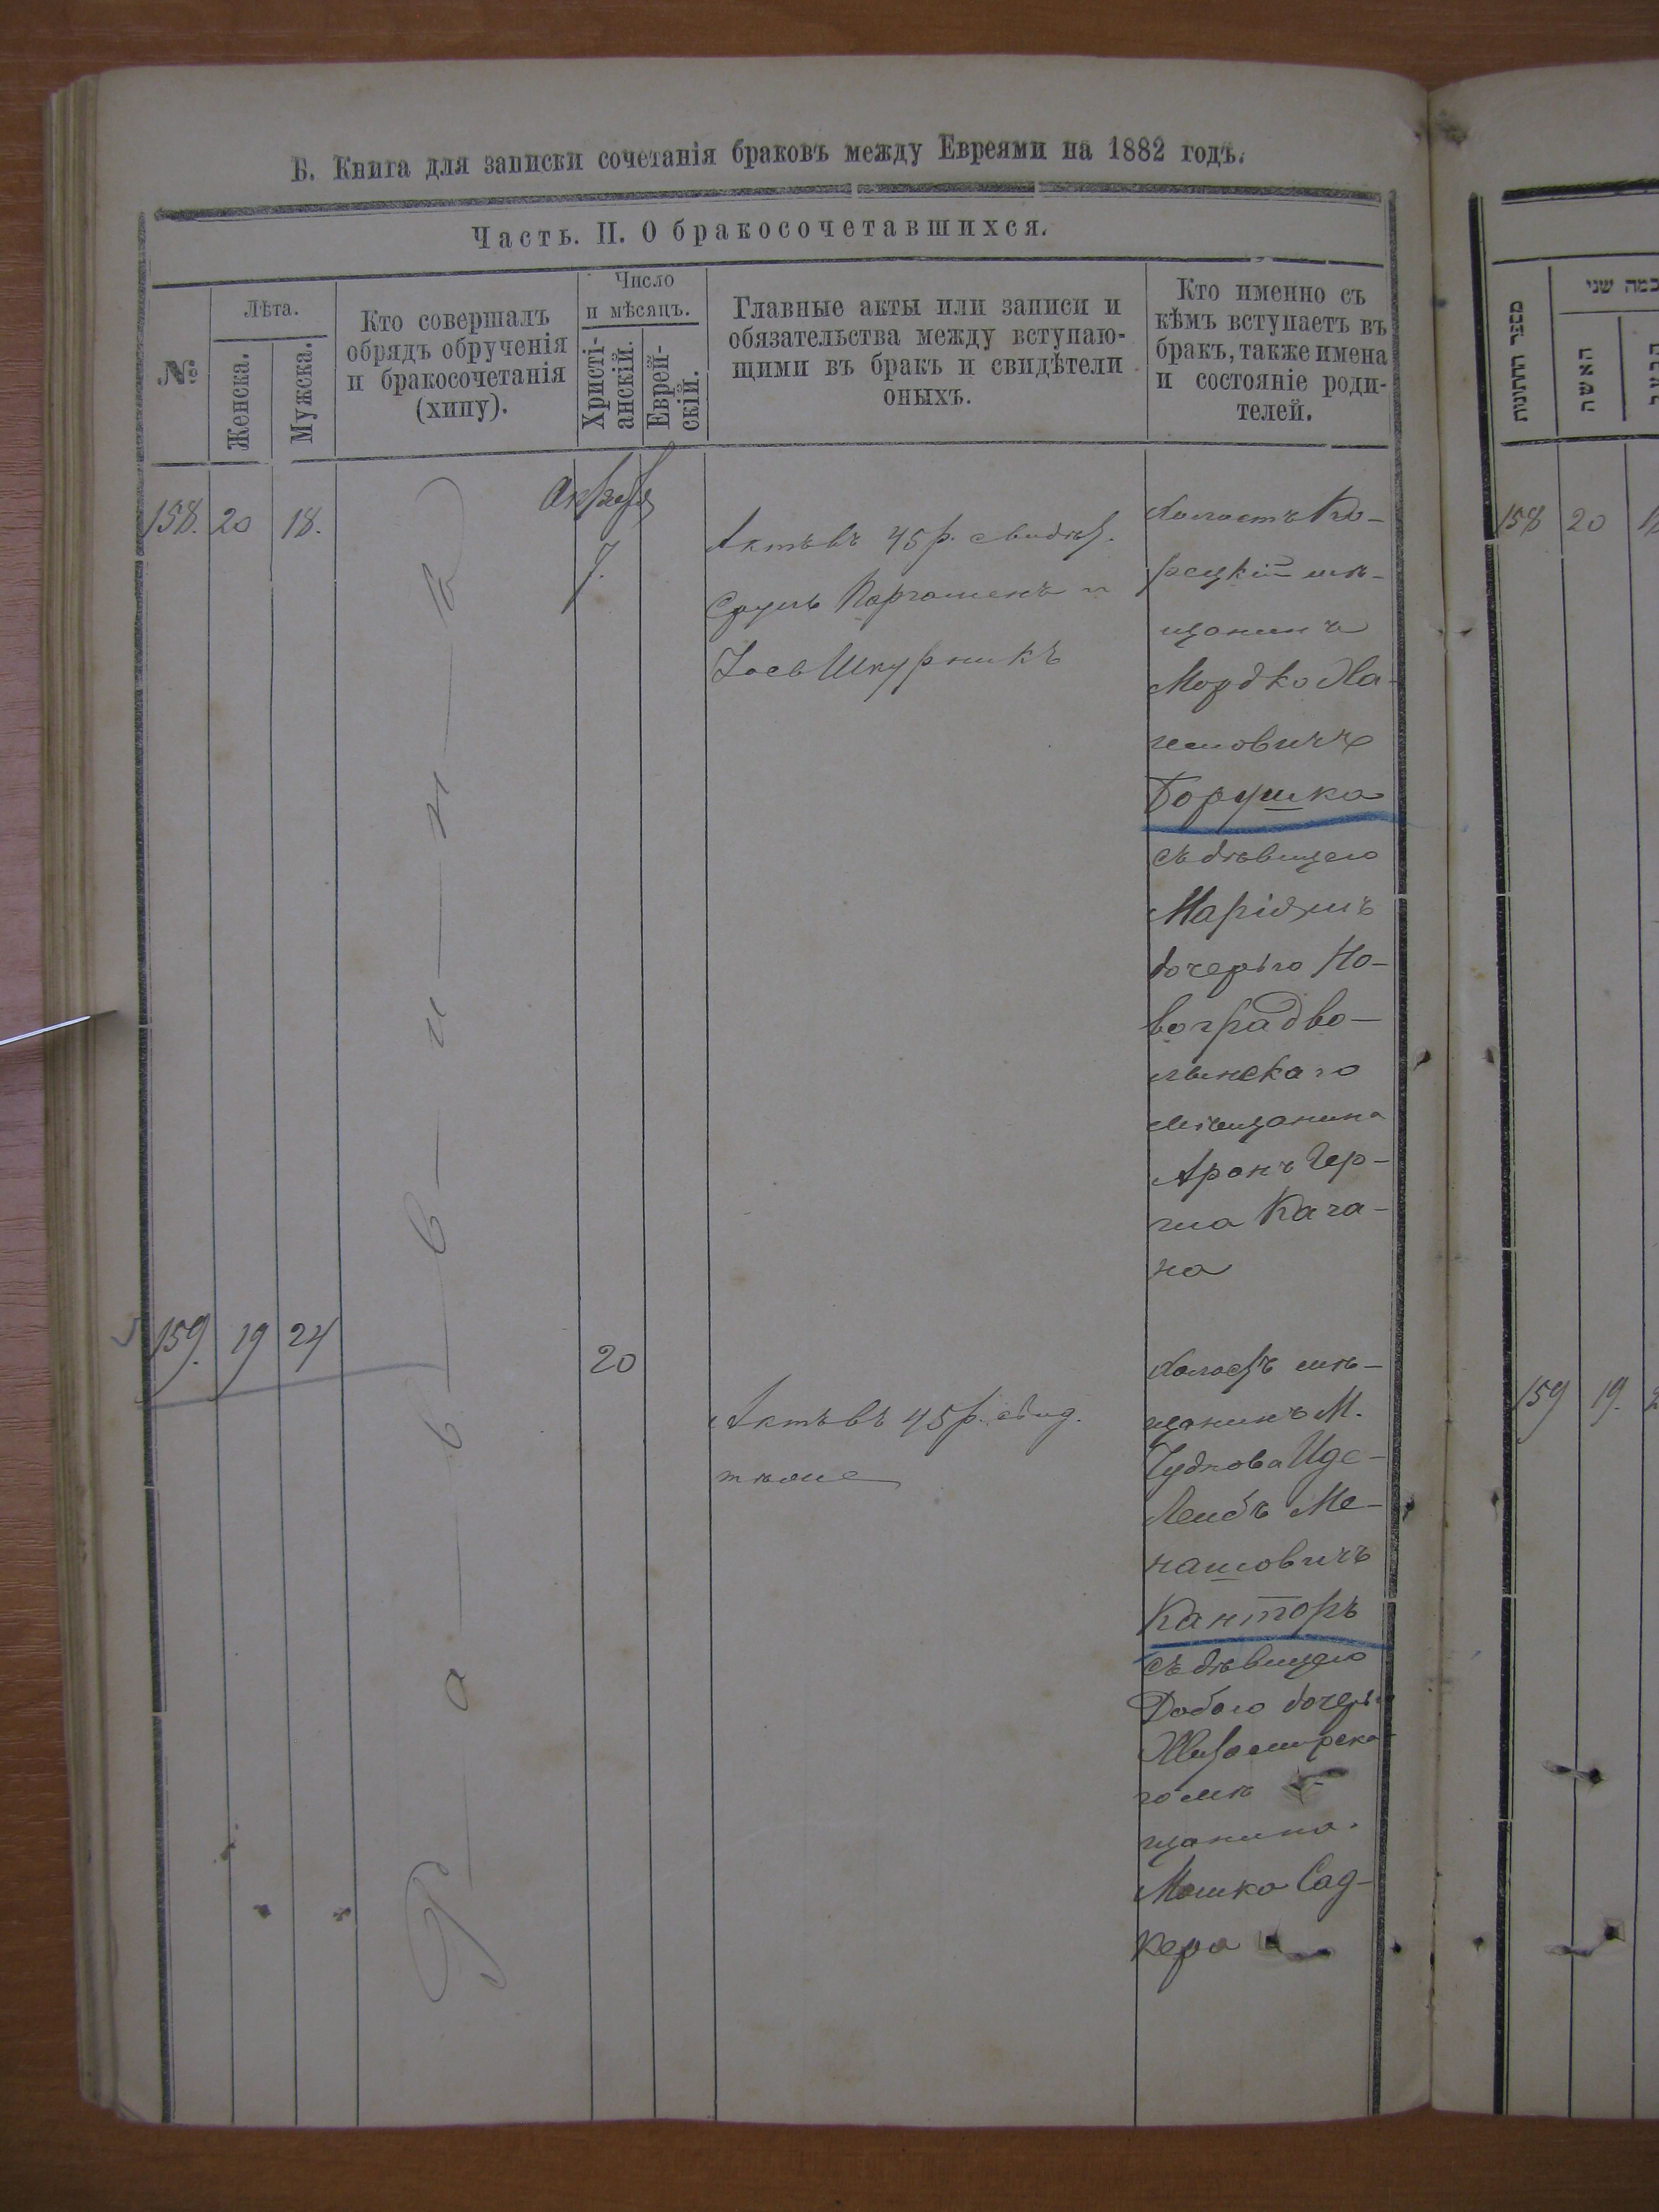 Б. Книга для записки сочетанія браковъ между Евреями на 1882 годъ.
Часть. II. О бракосочетавшихся.
№
Лѣта.
Женска.
Мужска.
Кто совершалъ
обрядъ обрученія
и бракосочетанія
(хипу).
Число
и мѣсяцъ.
Христі-
анскій.
Еврей-
скій.
Главные акты или записи и
обязательства между вступаю-
щими въ бракъ и свидѣтели
оныхъ.
Кто именно съ
кѣмъ вступаетъ въ
бракъ, также имена
и состояніе роди-
телей.
158. 20 18.
7.
Актъ въ 45 р. свидѣт.
Сруль Паргаменъ и
Іось Шкурникъ
Холостъ Ко-
рецкій мѣ-
щанинъ
Мордко Ха-
Борушко
съ дѣвицею
Маріямъ
дочерью Но-
воградво-
лынскаго
мѣщанина
Аронъ Гер-
на
159. 19 24
20
Актъ въ 45 р. свид.
тѣже
Холостъ мѣ-
щанинъ М.
Чуднова Иде-
Лейбъ Ме-
нашовичъ
Канторъ
съ дѣвицею
Добою дочерью
Житомирска-
го мѣ-
щанина
Мошко Сад-
кера
Раввинъ
מספר החתונות
כמה שני
האשה
158 20
159 19.